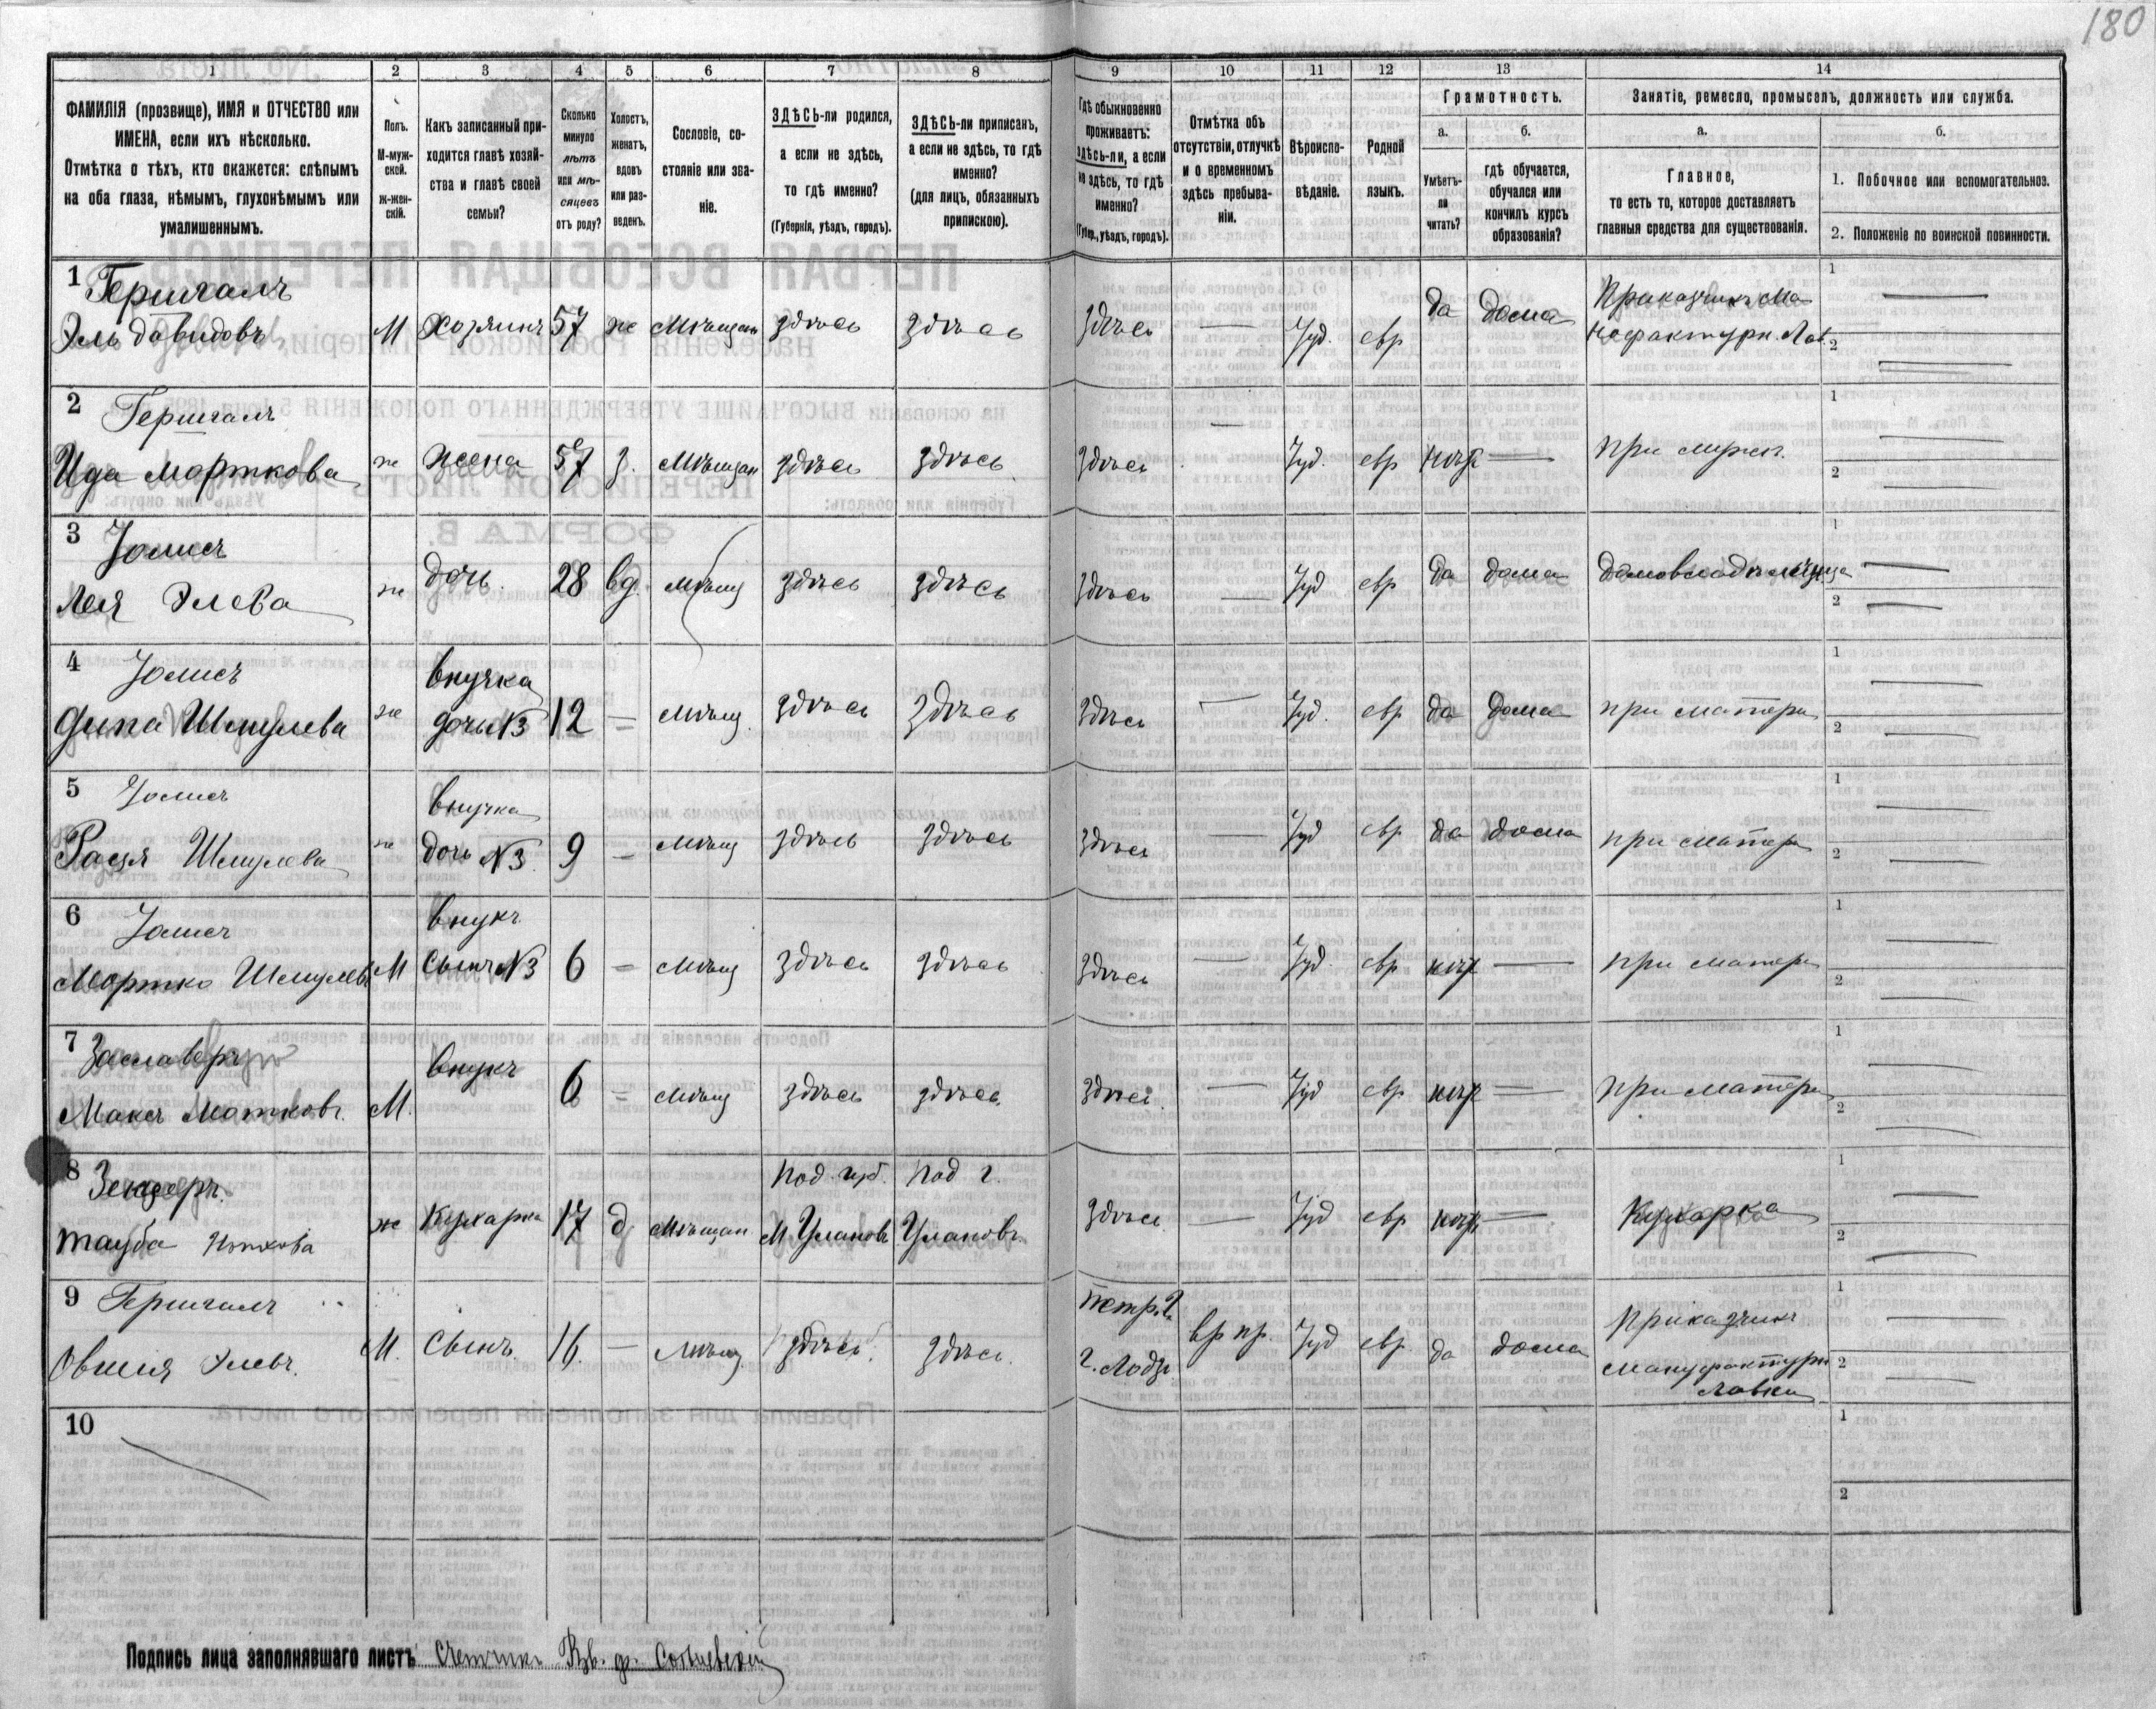 180
1
2
3
4
5
6
7
8
9
10
11
12
13
14
ФАМИЛІЯ (прозвище), ИМЯ и ОТЧЕСТВО или
ИМЕНА, если ихъ нѣсколько.
Отмѣтка о тѣхъ, кто окажется: слѣпымъ
на оба глаза, нѣмымъ, глухонѣмымъ или
умалишеннымъ.
Полъ.
М-муж-
ской.
ж-жен-
скій.
Какъ записанный при-
ходится главѣ хозяй-
ства и главѣ своей
семьи?
Сколько
минуло
лѣтъ
или мѣ-
сяцевъ
отъ роду?
Холостъ,
женатъ,
вдовъ
или раз-
веденъ.
Сословіе, со-
стояніе или зва-
ніе.
ЗДѢСЬ-ли родился,
а если не здѣсь,
то гдѣ именно?
(Губернія, уѣздъ, городъ).
ЗДѢСЬ-ли приписанъ,
а если не здѣсь, то гдѣ
именно?
(для лицъ, обязанныхъ
припискою).
Гдѣ обыкновенно
проживаетъ:
здѣсь-ли, а если
не здѣсь, то гдѣ
именно?
(Губер., уѣздъ, городъ).
Отмѣтка объ
отсутствіи, отлучкѣ
и о временномъ
здѣсь пребыва-
ніи.
Вѣроиспо-
вѣданіе.
Родной
языкъ.
Грамотность.
а.
Умѣетъ-
ли
читать?
б.
гдѣ обучается,
обучался или
кончилъ курсъ
образованія?
Занятіе, ремесло, промыселъ, должность или служба.
а.
Главное,
то есть то, которое доставляетъ
главныя средства для существованія.
б.
1. Побочное или вспомогательное.
2. Положеніе по воинской повинности.
1 Гершгалъ
Эль Давидовъ М Хозяинъ 57 же Мѣщан здѣсь здѣсь здѣсь — Іуд. евр да дома Приказчикъ Ма-
нофактурн. Лав. 1 — 2 —
2 Гершгалъ
Ида Морткова ж жена 57 з. Мѣщан здѣсь здѣсь здѣсь — Іуд. евр негр — при мужѣ 1 — 2 —
3 Іолисъ
Лея Элева ж дочь. 28 вд. мѣщ здѣсь здѣсь здѣсь — Іуд евр да дома домовладѣлица 1 — 2 —
4 Іолисъ внучка
Шмулева ж дочь №3 12 — мѣщ. здѣсь здѣсь здѣсь — Іуд. евр да дома при матери 1 — 2 —
5 Іолисъ внучка
Шмулева ж дочь №3. 9 — мѣщ здѣсь здѣсь здѣсь — Іуд евр да дома при матери 1 — 2 —
6 Іолисъ внукъ
Мортко Шмулевъ М Сынъ №3 6 — мѣщ здѣсь здѣсь здѣсь — Іуд евр негр — при матери 1 — 2 —
7 Заславеръ
Макс Мотковъ. М. внукъ 6 — мѣщ здѣсь здѣсь. здѣсь. — Іуд евр негр — при матери 1 — 2 —
8 Под. губ. Под г.
Тауба ж Кухарка 17 д мѣщан М. Улановъ Улановъ. здѣсь — Іуд евр негр — Кухарка 1 — 2 —
9 Гершгалъ
Овшія Элевъ. М. Сынъ. 16. — мѣщ здѣсь. здѣсь. Петр. г.
г. Лодзь вр пр. Іуд евр да дома Приказчикъ
мануфактурн
лавки 1 — 2 —
10
1
2
Подпись лица заполнявшаго листъ Счетчикъ